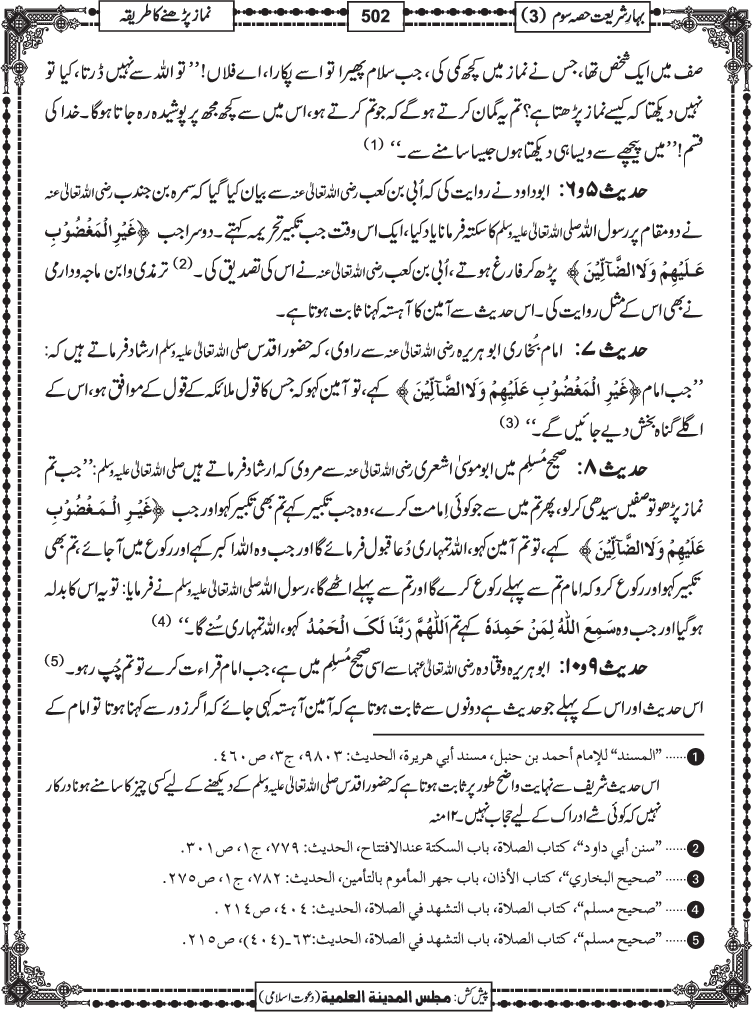 بہار شریعت حصہ سوم (3)
502
نماز پڑھنے کا طریقہ
صف میں ایک شخص تھا، جس نے نماز میں کچھ کمی کی، جب سلام پھیرا تو اسے پکارا، اے فلاں! ’’تو اللہ سے نہیں ڈرتا، کیا تو
نہیں دیکھتا کہ کیسے نماز پڑھتا ہے؟ تم یہ گمان کرتے ہو گے کہ جو تم کرتے ہو، اس میں سے کچھ مجھ پر پوشیدہ رہ جاتا ہوگا۔ خدا کی
قسم! ’’میں پیچھے سے ویسا ہی دیکھتا ہوں جیسا سامنے سے۔‘‘ (1)
حدیث ۵ و ۶: ابو داود نے روایت کی کہ اُبی بن کعب رضی اللہ تعالیٰ عنہ سے بیان کیا گیا کہ سمرہ بن جندب رضی اللہ تعالیٰ عنہ
نے دو مقام پر رسول اللہ صلی اللہ تعالیٰ علیہ وسلم کا سکتہ فرمانا یاد کیا، ایک اس وقت جب تکبیر تحریمہ کہتے۔ دوسرا جب ﴿غَیْرِ الْمَغْضُوْبِ
عَلَیْهِمْ وَلَا الضَّآلِّیْنَ﴾ پڑھ کر فارغ ہوتے، اُبی بن کعب رضی اللہ تعالیٰ عنہ نے اس کی تصدیق کی۔ (2) ترمذی و ابن ماجہ و دارمی
نے بھی اس کے مثل روایت کی۔ اس حدیث سے آمین کا آہستہ کہنا ثابت ہوتا ہے۔
حدیث ۷: امام بُخاری ابو ہریرہ رضی اللہ تعالیٰ عنہ سے راوی، کہ حضور اقدس صلی اللہ تعالیٰ علیہ وسلم ارشاد فرماتے ہیں کہ:
’’جب امام ﴿غَیْرِ الْمَغْضُوْبِ عَلَیْهِمْ وَلَا الضَّآلِّیْنَ﴾ کہے، تو آمین کہو کہ جس کا قول ملائکہ کے قول کے موافق ہو، اس کے
اگلے گناہ بخش دیے جائیں گے۔‘‘ (3)
حدیث ۸: صحیح مُسلِم میں ابو موسیٰ اشعری رضی اللہ تعالیٰ عنہ سے مروی کہ ارشاد فرماتے ہیں صلی اللہ تعالیٰ علیہ وسلم: ’’جب تم
نماز پڑھو تو صفیں سیدھی کر لو، پھر تم میں سے جو کوئی اِمامت کرے، وہ جب تکبیر کہے تم بھی تکبیر کہو اور جب ﴿غَیْرِ الْمَغْضُوْبِ
عَلَیْهِمْ وَلَا الضَّآلِّیْنَ﴾ کہے، تو تم آمین کہو، اللہ تمہاری دُعا قبول فرمائے گا اور جب وہ اللہ اکبر کہے اور رکوع میں آجائے، تم بھی
تکبیر کہو اور رکوع کرو کہ امام تم سے پہلے رکوع کرے گا اور تم سے پہلے اٹھے گا، رسول اللہ صلی اللہ تعالیٰ علیہ وسلم نے فرمایا: تو یہ اس کا بدلہ
ہوگیا اور جب وہ سَمِعَ اللّٰهُ لِمَنْ حَمِدَهٗ کہے تم اَللّٰهُمَّ رَبَّنَا لَکَ الْحَمْدُ کہو، اللہ تمہاری سُنے گا۔‘‘ (4)
حدیث ۹ و ۱۰: ابو ہریرہ و قتادہ رضی اللہ تعالیٰ عنہما سے اسی صحیح مُسلِم میں ہے، جب امام قراءت کرے تو تم چُپ رہو۔ (5)
اس حدیث اور اس کے پہلے جو حدیث ہے دونوں سے ثابت ہوتا ہے کہ آمین آہستہ کہی جائے کہ اگر زور سے کہنا ہوتا تو امام کے
1 ...... ”المسند“ للإمام أحمد بن حنبل، مسند أبي هريرة، الحديث: ٩٨٠٣، ج٣، ص٤٦٠.
اس حدیث شریف سے نہایت واضح طور پر ثابت ہوتا ہے کہ حضور اقدس صلی اللہ تعالیٰ علیہ وسلم کے دیکھنے کے لیے کسی چیز کا سامنے ہونا درکار
نہیں کہ کوئی شے ادراک کے لیے حجاب نہیں۔ ۱۲ منہ
2 ...... ”سنن أبي داود“، كتاب الصلاة، باب السكتة عند الافتتاح، الحديث: ٧٧٩، ج١، ص٣٠١.
3 ...... ”صحيح البخاري“، كتاب الأذان، باب جهر المأموم بالتأمين، الحديث: ٧٨٢، ج١، ص٢٧٥.
4 ...... ”صحيح مسلم“، كتاب الصلاة، باب التشهد في الصلاة، الحديث: ٤٠٤، ص٢١٤.
5 ...... ”صحيح مسلم“، كتاب الصلاة، باب التشهد في الصلاة، الحديث: ٦٣ـ(٤٠٤)، ص٢١٥.
پیش کش: مجلس المدينة العلمية (دعوت اسلامی)